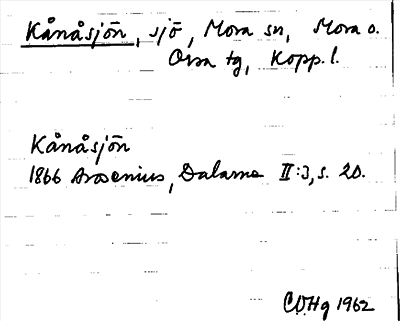 Kånåsjön, sjö, Mora sn, Mora o.
Orsa tg, Kopp. l.
Kånåsjön
1866 Arosenius, Dalarne II:3, s. 20.
CVHg 1962